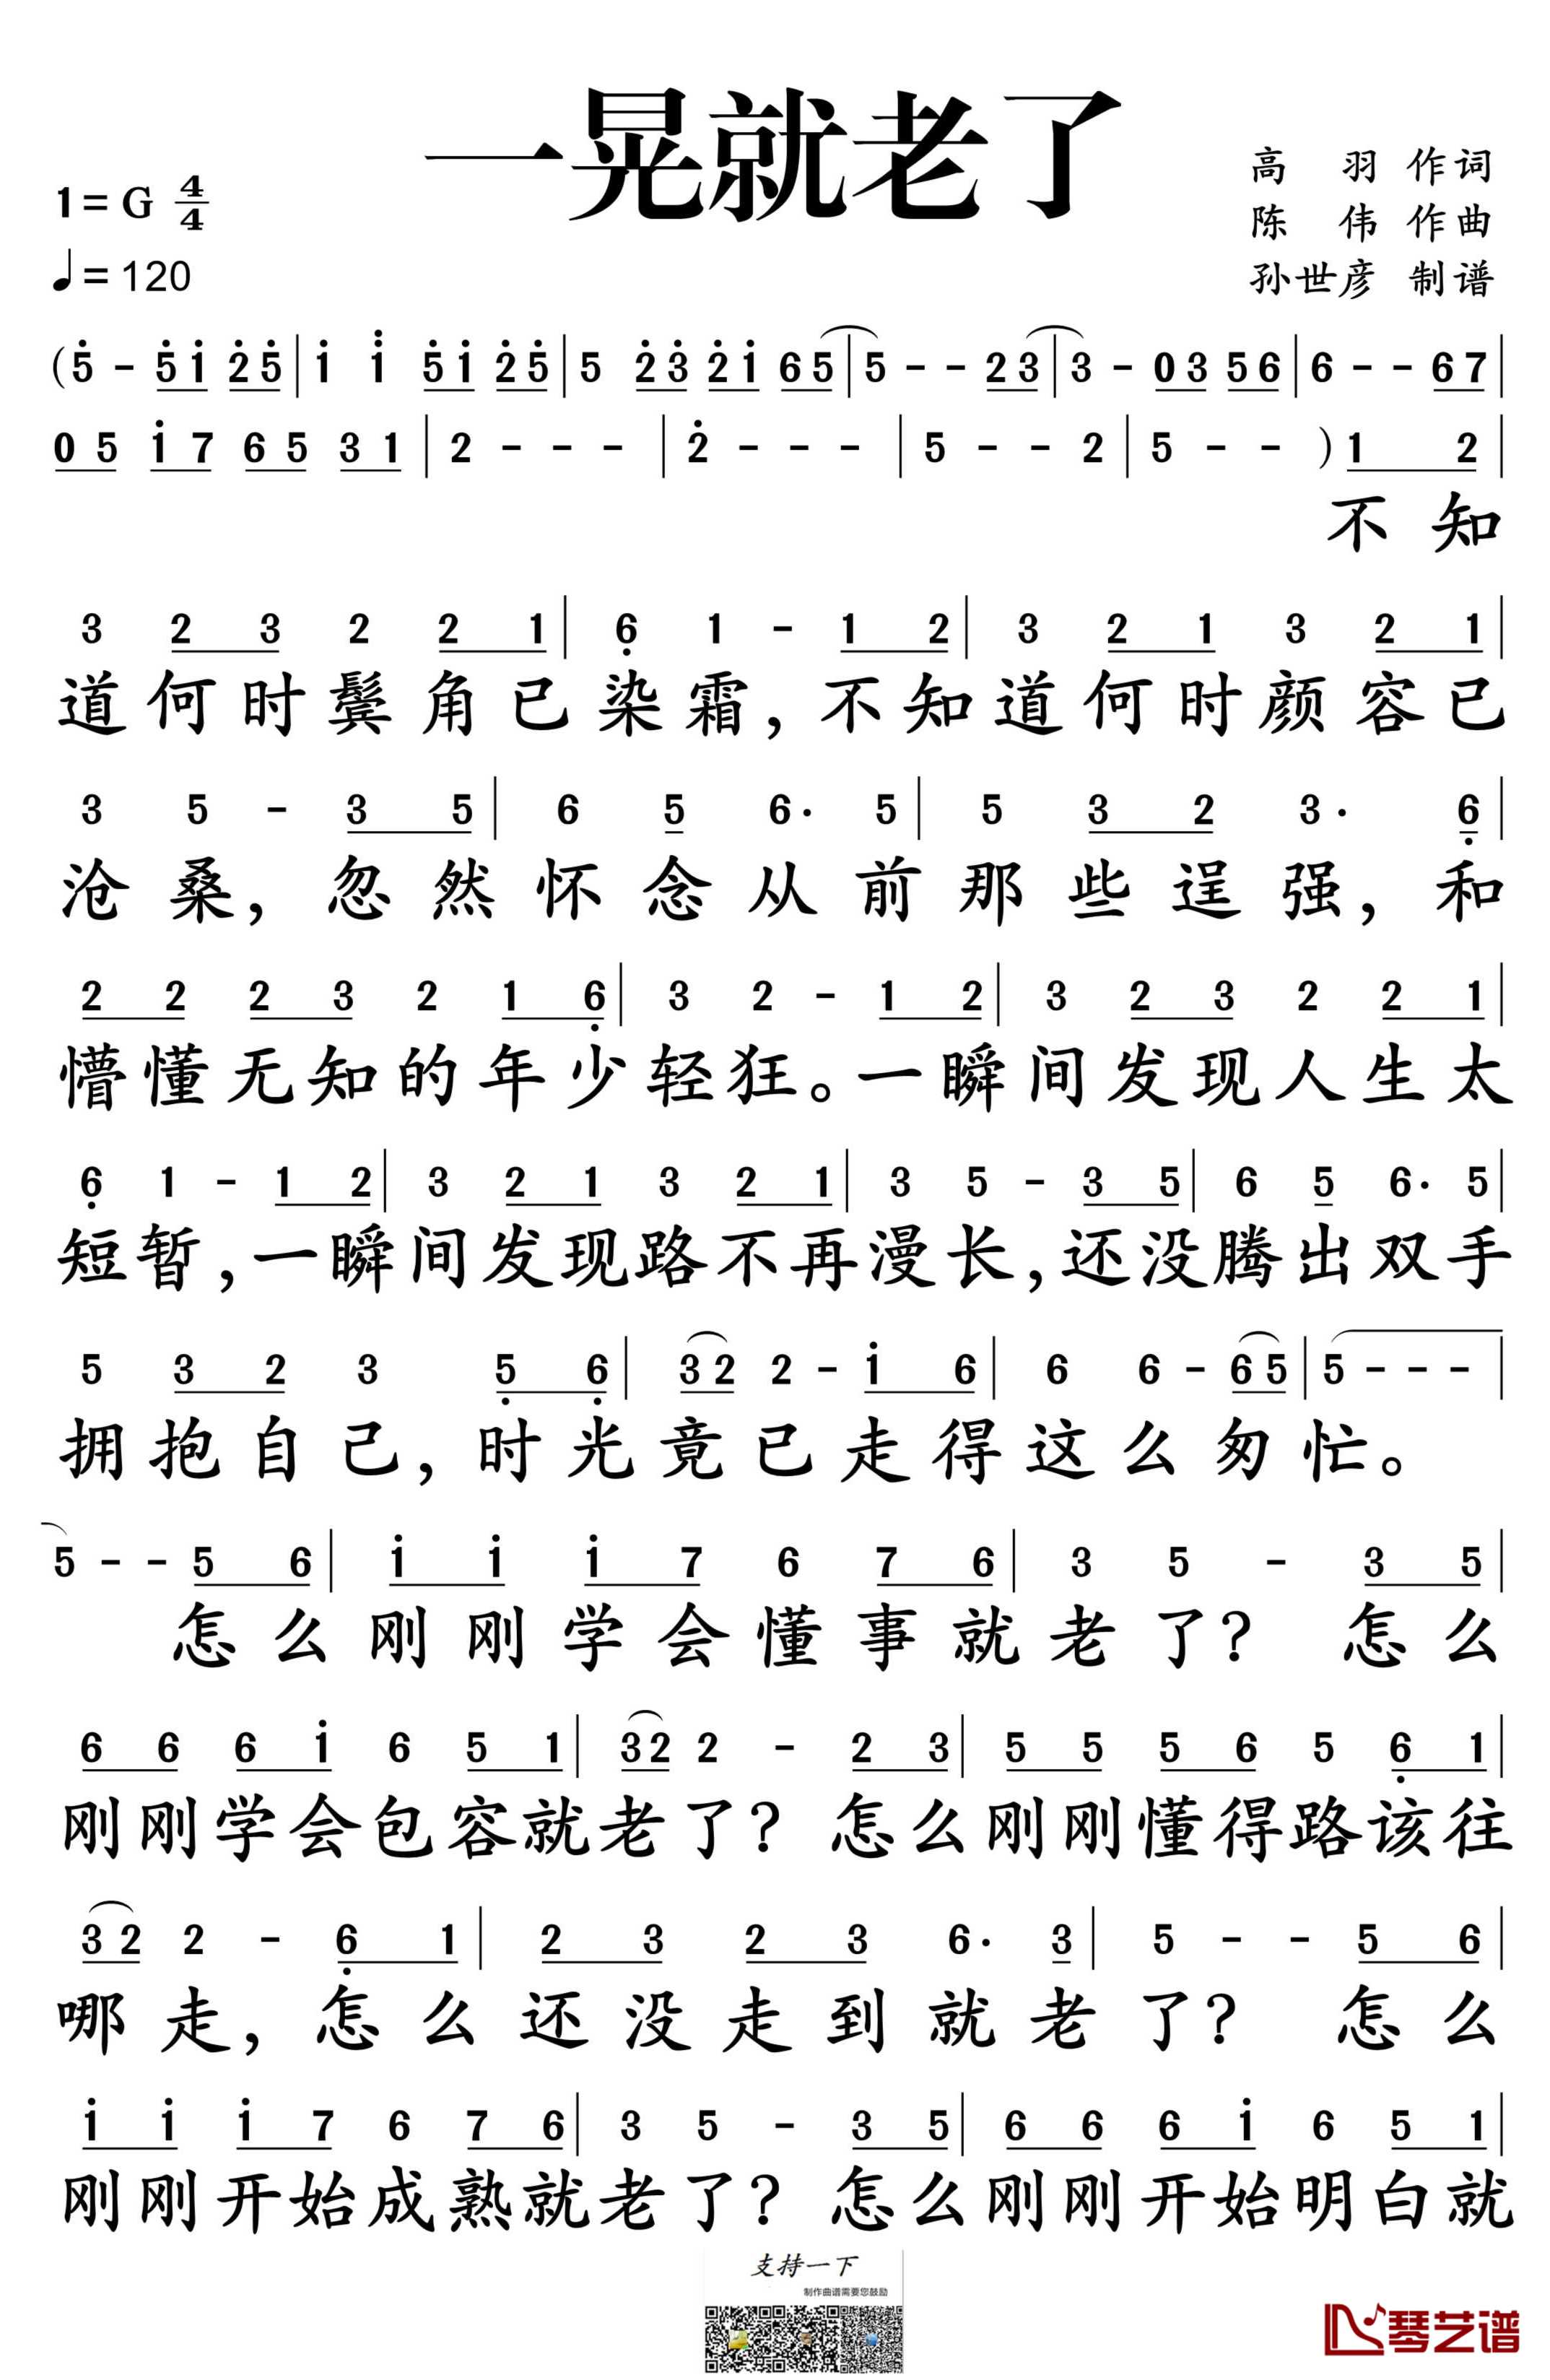 一晃就老了
高 羽 作词
1=G 4/4
陈 伟 作曲
♩=120
孙世彦 制谱
(5̇ - 5̇ 1̇ 2̇ 5̇ | 1̇ 1̈ 5̇ 1̇ 2̇ 5̇ | 5 2̇ 3̇ 2̇ 1̇ 6 5 | 5 - - 2 3 | 3 - 0 3 5 6 | 6 - - 6 7 |
0 5 1̇ 7 6 5 3 1 | 2 - - - | 2̇ - - - | 5 - - 2 | 5 - - ) 1 2 |
不 知
3 2 3 2 2 1 | 6̣ 1 - 1 2 | 3 2 1 3 2 1 |
道何时鬓角已染霜,不知道何时颜容已
3 5 - 3 5 | 6 5 6· 5 | 5 3 2 3· 6̣ |
沧桑,忽然怀念从前那些逞强,和
2 2 2 3 2 1 6̣ | 3 2 - 1 2 | 3 2 3 2 2 1 |
懵懂无知的年少轻狂。一瞬间发现人生太
6̣ 1 - 1 2 | 3 2 1 3 2 1 | 3 5 - 3 5 | 6 5 6· 5 |
短暂,一瞬间发现路不再漫长,还没腾出双手
5 3 2 3 5̣ 6̣ | 3 2 2 - 1̇ 6 | 6 6 - 6 5 | 5 - - - |
拥抱自己,时光竟已走得这么匆忙。
5 - - 5 6 | 1̇ 1̇ 1̇ 7 6 7 6 | 3 5 - 3 5 |
怎么刚刚学会懂事就老了? 怎么
6 6 6 1̇ 6 5 1 | 3 2 2 - 2 3 | 5 5 5 6 5 6̣ 1 |
刚刚学会包容就老了? 怎么刚刚懂得路该往
3 2 2 - 6̣ 1 | 2 3 2 3 6· 3 | 5 - - 5 6 |
哪走,怎么还没走到就老了? 怎么
1̇ 1̇ 1̇ 7 6 7 6 | 3 5 - 3 5 | 6 6 6 1̇ 6 5 1 |
刚刚开始成熟就老了? 怎么刚刚开始明白就
支持一下
制作曲谱需要您鼓励
琴艺谱